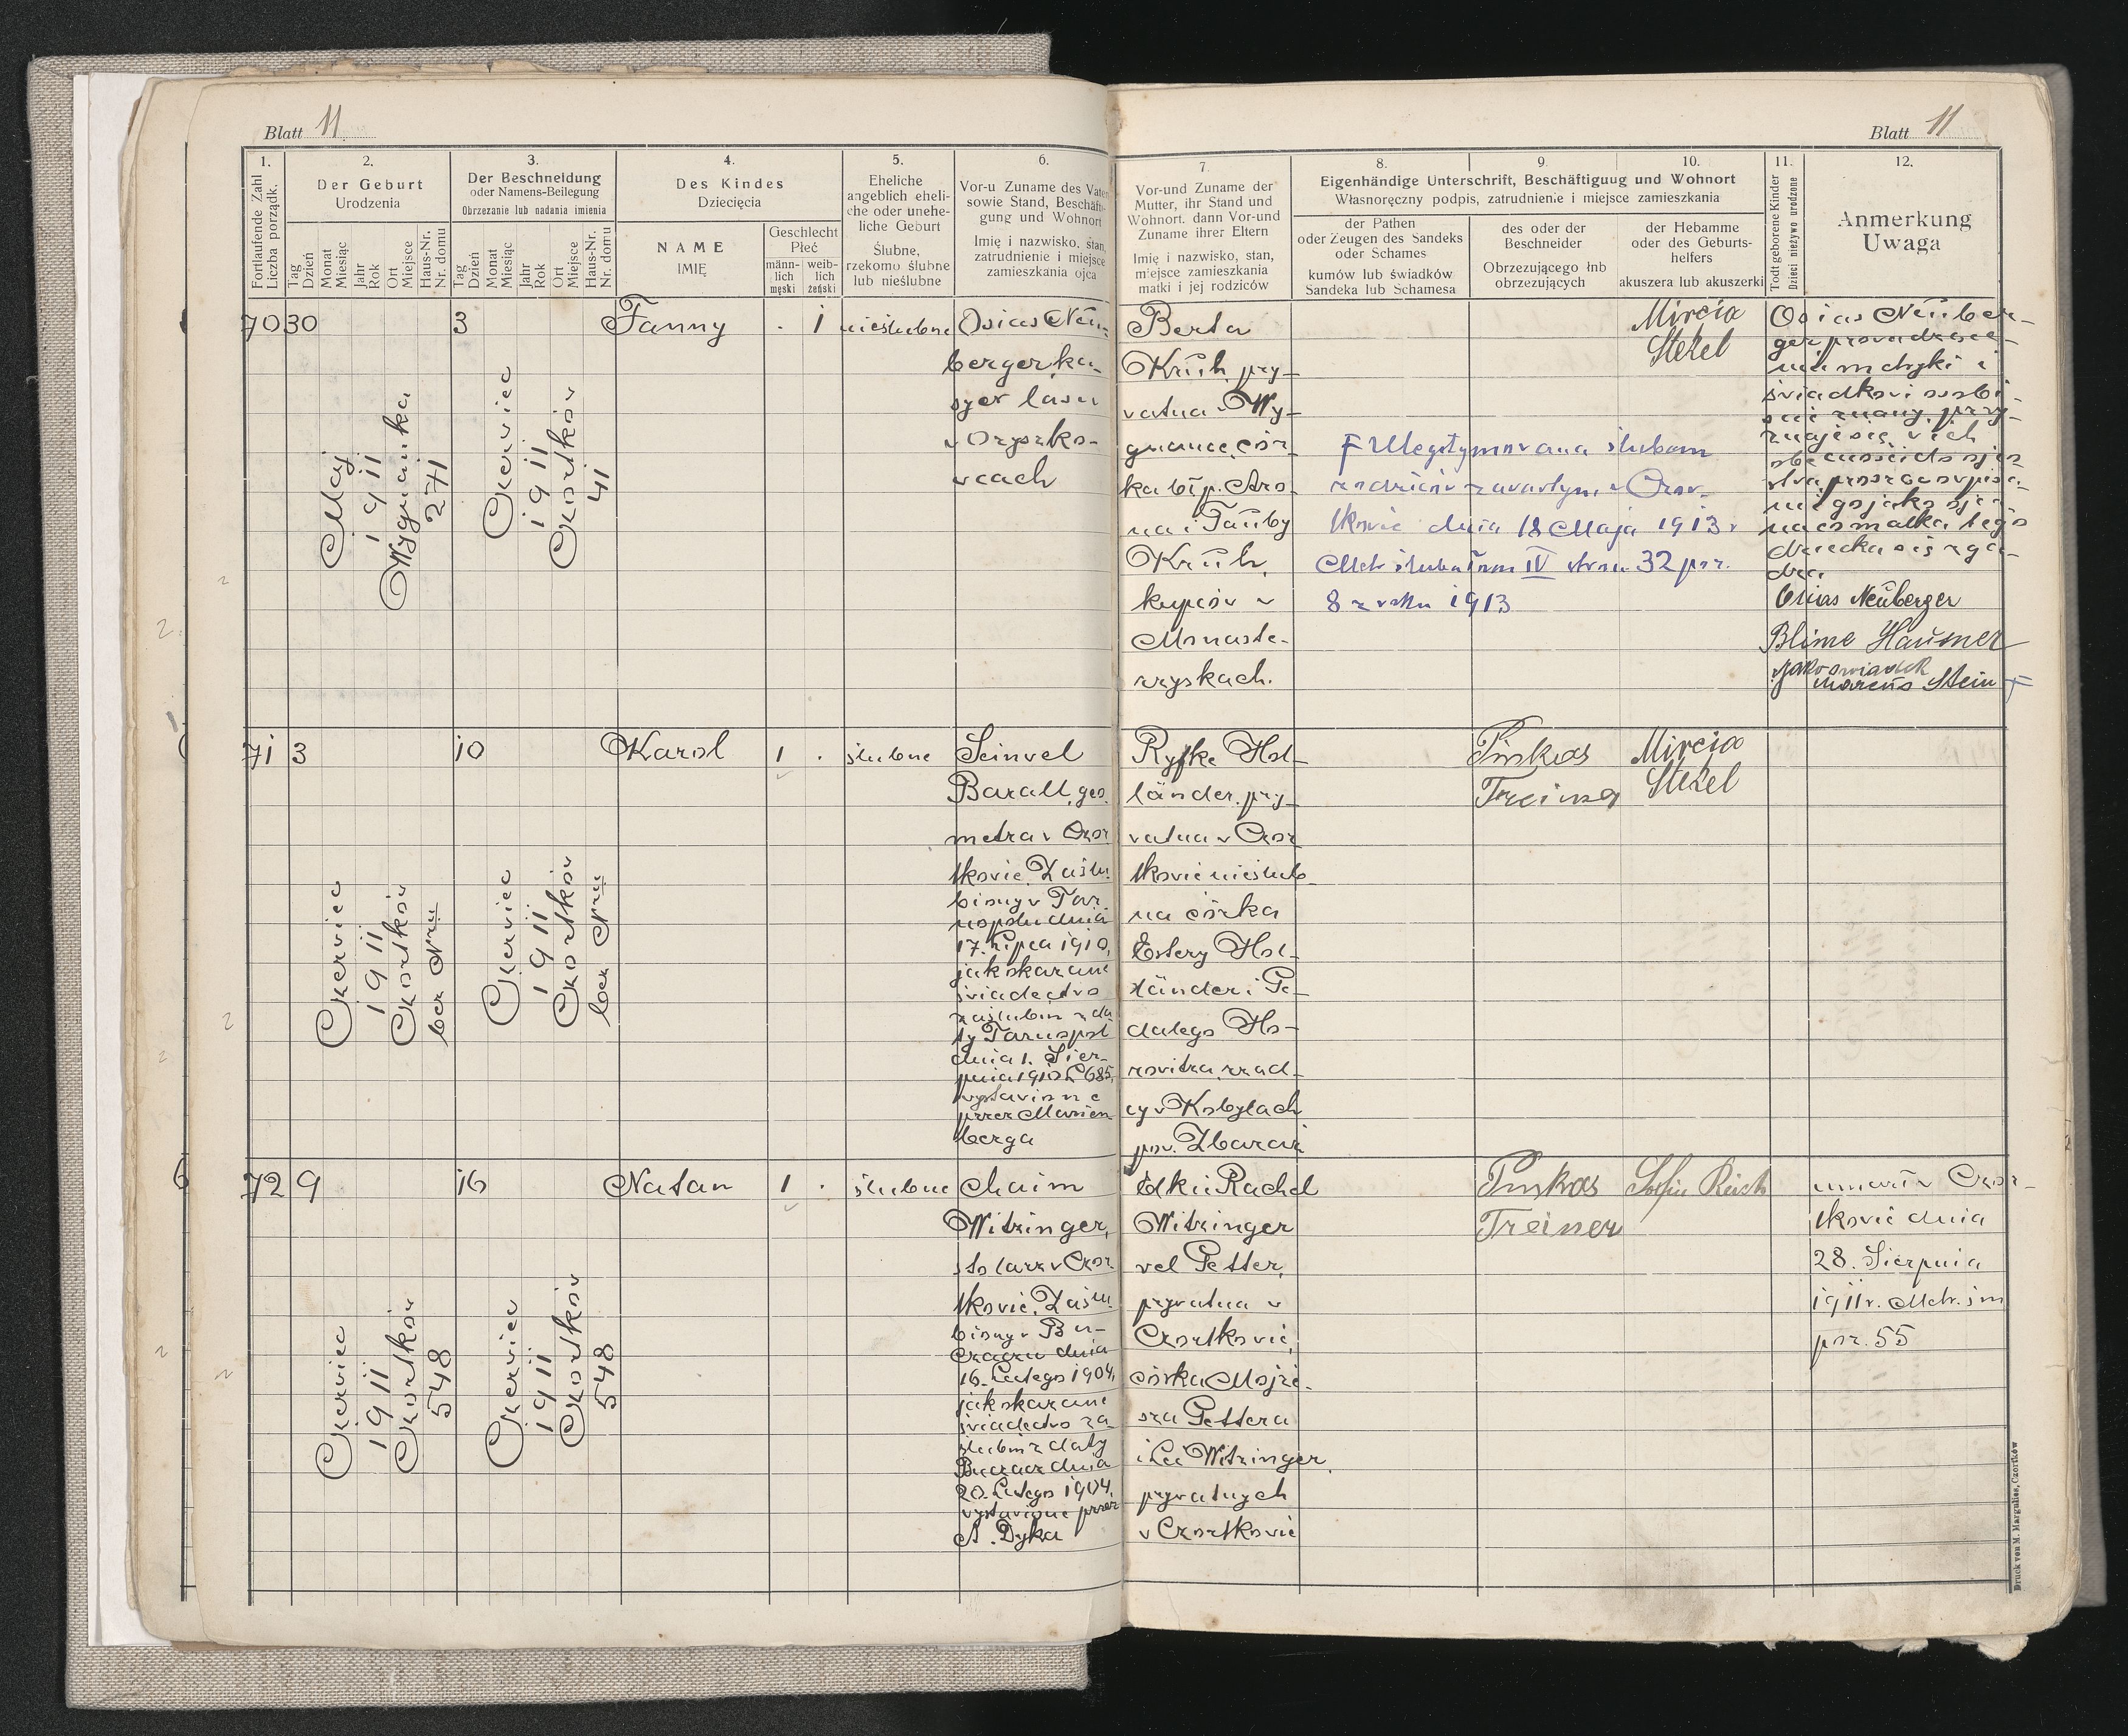 Blatt 11
Blatt 11
1.
Fortlaufende Zahl
Liczba porządk.
2.
Der Geburt
Urodzenia
Tag
Dzień
Monat
Miesiąc
Jahr
Rok
Ort
Miejsce
Haus-Nr.
Nr. domu
3.
Der Beschneidung
oder Namens-Beilegung
Obrzezanie lub nadania imienia
Tag
Dzień
Monat
Miesiąc
Jahr
Rok
Ort
Miejsce
Haus-Nr.
Nr. domu
4.
Des Kindes
Dziecięcia
NAME
IMIĘ
Geschlecht
Płeć
männ-
lich
męski
weib-
lich
żeński
5.
Eheliche
angeblich eheli-
che oder unehe-
liche Geburt
Ślubne,
rzekomo ślubne
lub nieślubne
6.
Vor-u Zuname des Vaters
sowie Stand, Beschäfti-
gung und Wohnort
Imię i nazwisko. stan,
zatrudnienie i miejsce
zamieszkania ojca
7.
Vor-und Zuname der
Mutter, ihr Stand und
Wohnort. dann Vor-und
Zuname ihrer Eltern
Imię i nazwisko, stan,
miejsce zamieszkania
matki i jej rodziców
8.
9.
10.
Eigenhändige Unterschrift, Beschäftiguug und Wohnort
Własnoręczny podpis, zatrudnienie i miejsce zamieszkania
der Pathen
oder Zeugen des Sandeks
oder Schames
kumów lub świadków
Sandeka lub Schamesa
des oder der
Beschneider
Obrzezującego łnb
obrzezujących
der Hebamme
oder des Geburts-
helfers
akuszera lub akuszerki
11.
Todt geborene Kinder
Dzieci nieżywo urodzone
12.
Anmerkung
Uwaga
70
30
Maj
1911
Wygnanka
271
3
Czerwiec
1911
Czortków
41
Fanny
. 1
nieślubne
Osias Neu-
berger, ka-
syer lasu
w Oryszko-
wcach
Berta
Krüh, pry-
watna w Wy-
gnance, cór-
ka bł. p. Aro-
na i Tauby
Krüh,
kupców w
Monaste-
rzyskach.
F Ulegitymowana ślubem
rodziców zawartym w Czor-
tkowie dnia 18 Maja 1913 r
Metr ślubów Tom IV stron. 32 poz.
8 z roku 1913
Mircia
Stekel
Osias Neuber-
ger prowadzące-
mu metryki i
świadkowi osobi-
ście znany, przy-
znaje się w ich
obecności do ojco-
stwa, prosząc o wpisa-
nie go jako ojca
na co matka tego
dziecka się zga-
dza.
Osias Neuberger
Blime Hausner
jako świadek
Marcus Stein
71
3
Czerwiec
1911
Czortków
bez Nru
10
Czerwiec
1911
Czortków
bez Nru
Karol
1 .
ślubne
Seinwel
Barall, geo-
metra w Czor
tkowie. Zaślu-
biony w Tar
nopolu dnia
17. Lipca 1910,
jak okazane
świadectwo
zaślubin z da
ty Tarnopol
dnia 1. Sier-
pnia 1910 L 685,
wystawione
przez Marien-
berga
Ryfke Hol-
länder, pry-
watna w Czor
tkowie nieślub-
na córka
Estery Hol-
länder i Ge-
dalego Ho-
rowitza, rząd-
cy w Kobyłach
pow. Zbaraż
Pinkas
Treiner
Mircia
Stekel
72
9
Czerwiec
1911
Czortków
548
16
Czerwiec
1911
Czortków
548
Natan
1 .
ślubne
Chaim
Witzinger,
stolarz w Czor
tkowie. Zaślu-
biony w Bu-
czaczu dnia
16. Lutego 1904,
jak okazane
świadectwo za-
ślubin z daty
Buczacz dnia
20. Lutego 1904,
wystawione przez
A. Dyka
Edkii Rachel
Witzinger
vel Petter,
prywatna w
Czortkowie,
córka Mojże-
sza Pettera
i Lei Witzinger,
prywatnych
w Czortkowie
Pinkas
Treiner
Sofie Reich
umarł w Czor-
tkowie dnia
28. Sierpnia
1911 r. Metr. śm
poz. 55
Druck von M. Margulies, Czortków